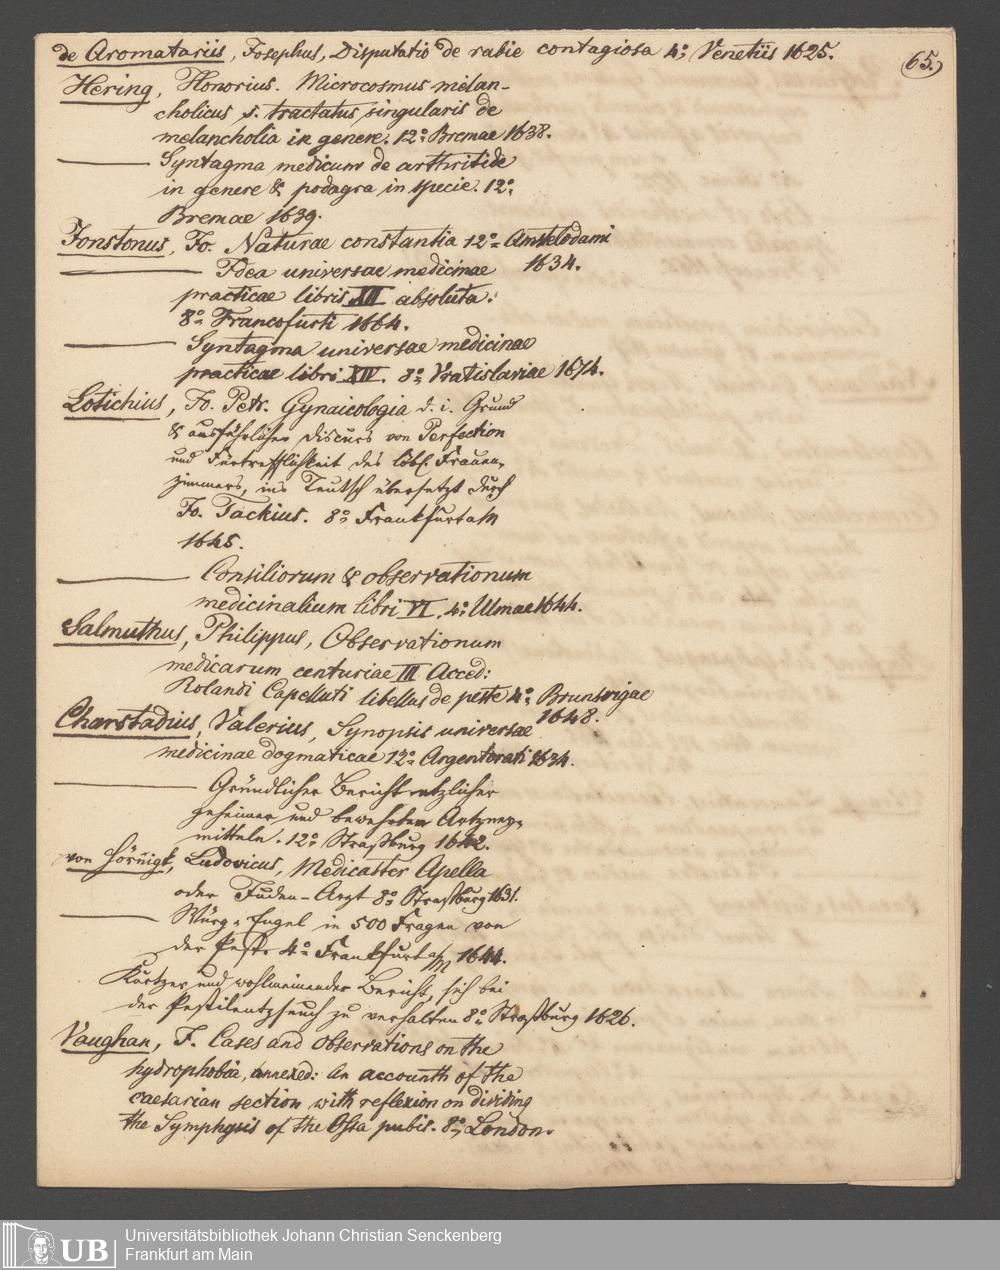 de Aromatariis, Josephus, Disputatio de rabie contagiosa 4o; Venetiis 1625.
65.)
Hering, Honorius. Microcosmus melan-
cholicus s. tractatus singularis de
melancholia in genere. 12o Bremae 1638.
——— Syntagma medicum de arthritide
in genere & podagra in specie. 12o;
Bremae 1639.
Jonstonus, Jo. Naturae constantia 12o Amstelodami
1634.
——— Idea universae medicinae
practicae libris XII absoluta.
8o Francofurti 1664.
——— Syntagma universae medicinae
practicae libri XIV. 8o; Vratislaviae 1674.
Lotichius, Jo. Petr. Gynaicologia d. i. Grund
& ausführlicher Discurs von Perfection
und Fürtrefflichkeit des löbl. Frauen-
zimmers, ins Teutsch übersetzt durch
Jo. Tackius. 8o Frankfurt a/m
1645.
——— Consiliorum & observationum
medicinalium libri VI. 4o Ulmae 1644.
Salmuthus, Philippus, Observationum
medicarum centuriae III Acced:
Rolandi Capelluti libellus de peste 4o; Brunsvigae
1648.
Charstadius, Valerius, Synopsis universae
medicinae dogmaticae 12o Argentorati 1634.
——— Gründlicher Bericht etzlicher
geheimer und bewehrten Artzney-
mitteln. 12o Straßburg 1642.
von Hörnigk, Ludovicus, Medicaster Apella
oder Juden-Arzt 8o Straßburg 1631.
——— Würg-Engel in 500 Fragen von
der Pest. 4o Frankfurt a/M 1644.
Kurtzer und wohlmeinender Bericht, sich bei
der Pestilentzseuch zu verhalten 8o Straßburg 1626.
Vaughan, J. Cases and observations on the
hydrophobia, annexed: an accounth of the
caesarian section with reflexion on dividing
the Symphysis of the Ossa pubis. 8o; London.
UB
Universitätsbibliothek Johann Christian Senckenberg
Frankfurt am Main